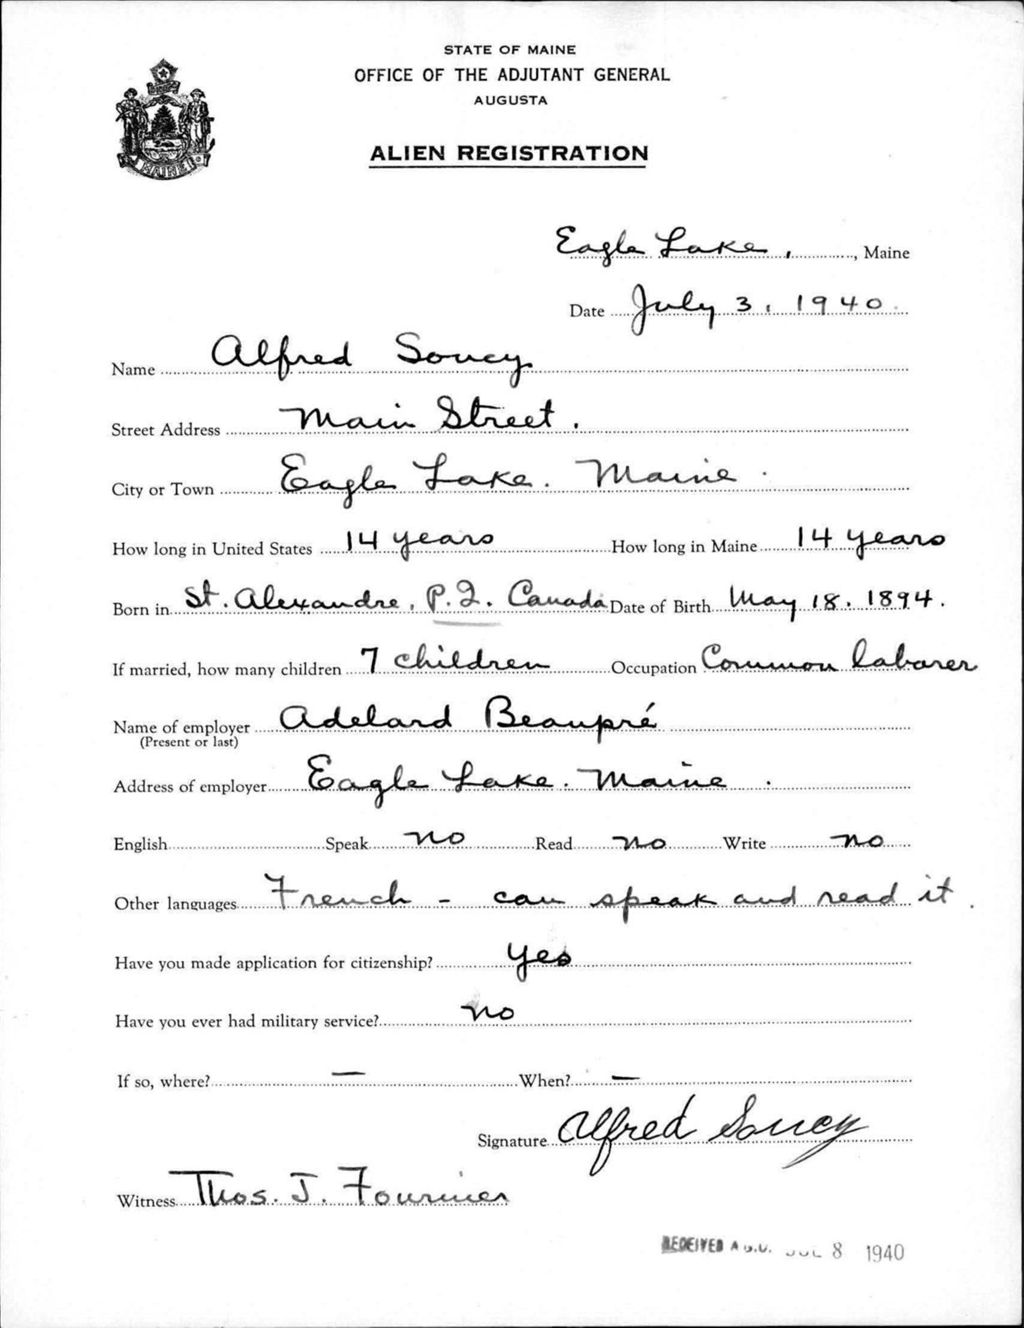 STATE OF MAINE
OFFICE OF THE ADJUTANT GENERAL
AUGUSTA
ALIEN REGISTRATION
MAINE
Eagle Lake, , Maine
Date July 3, 1940.
Name Alfred Soucy
Street Address Main Street.
City or Town Eagle Lake. Maine.
How long in United States 14 years How long in Maine 14 years
Born in St. Alexandre, P.Q. Canada Date of Birth May 18. 1894.
If married, how many children 7 children Occupation Common laborer
Name of employer Adelard Beaupré
(Present or last)
Address of employer Eagle Lake. Maine.
English Speak no Read no Write no
Other languages French - can speak and read it.
Have you made application for citizenship? yes
Have you ever had military service? no
If so, where? — When? —
Signature Alfred Soucy
Witness Thos. J. Fournier
RECEIVED A.G.O. JUL 8 1940